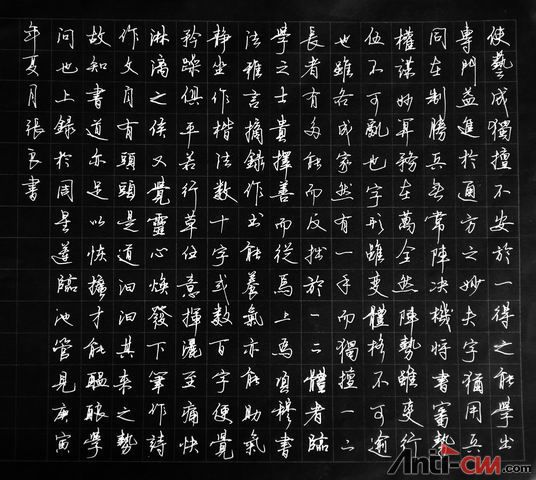 使藝成獨擅不安於一得之能學出
專門益進於通方之妙夫字猶用兵
同在制勝兵無常陣決機將書審勢
權謀妙算務在萬全然陣勢雖變行
伍不可亂也字形雖變體格不可逾
也雖各成家然有一手而獨擅一二
長者有多能而反拙於一二體者臨
學之士貴擇善而從焉上為項穆書
法雅言摘錄作書能養氣亦能助氣
靜坐作楷法數十字或數百字便覺
矜躁俱平若行草任意揮灑至痛快
淋漓之候又覺靈心煥發下筆作詩
作文自有頭頭是道汩汩其來之勢
故知書道亦足以恢擴才能醞釀學
問也上錄於周星蓮臨池管見庚寅
年夏月張良書
Anti-CNN.com